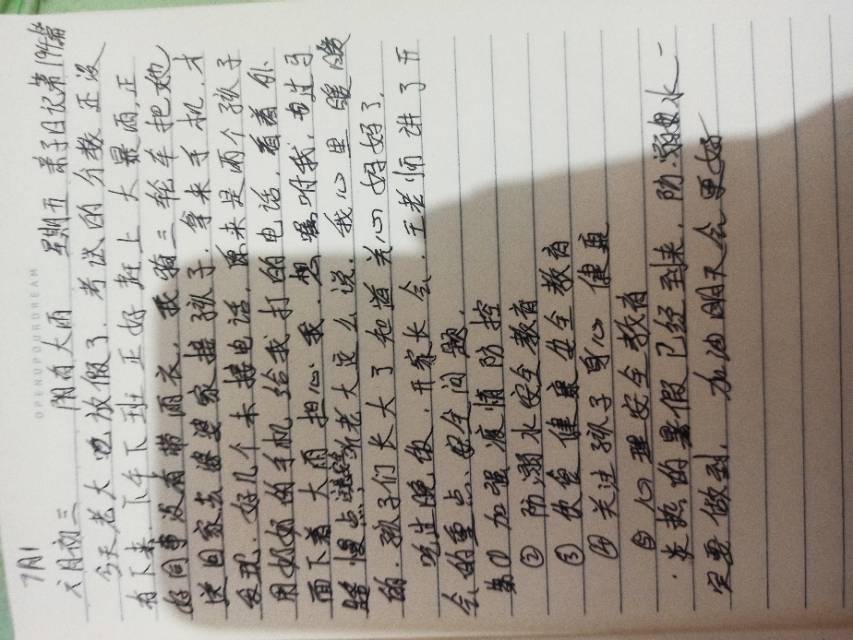 OPENUPOURDREAM
7月1
六月初三 阴有大雨 星期五 弟子日记第194篇
今天老大也放假了，考试的分数还没
有下来，下午下班正好赶上大暴雨，正
好同事没有带雨衣，我骑三轮车把她
送回家去婆婆家接孩子，拿来手机才
发现，好几个未接电话，原来是两个孩子
用奶奶的手机给我打的电话，看着外
面下着大雨担心我，想嘱咐我，电过马
路慢点，听老大这么说，我心里暖暖
的，孩子们长大了知道关心妈妈了。
吃过晚饭，开家长会，王老师讲了开
会的重点，安全问题，
①加强疫情防控
②防溺水安全教育
③饮食健康安全教育
④关注孩子身心健康
⑤心理安全教育
炎热的暑假已经到来，防溺水一
定要做到，加油明天会更好